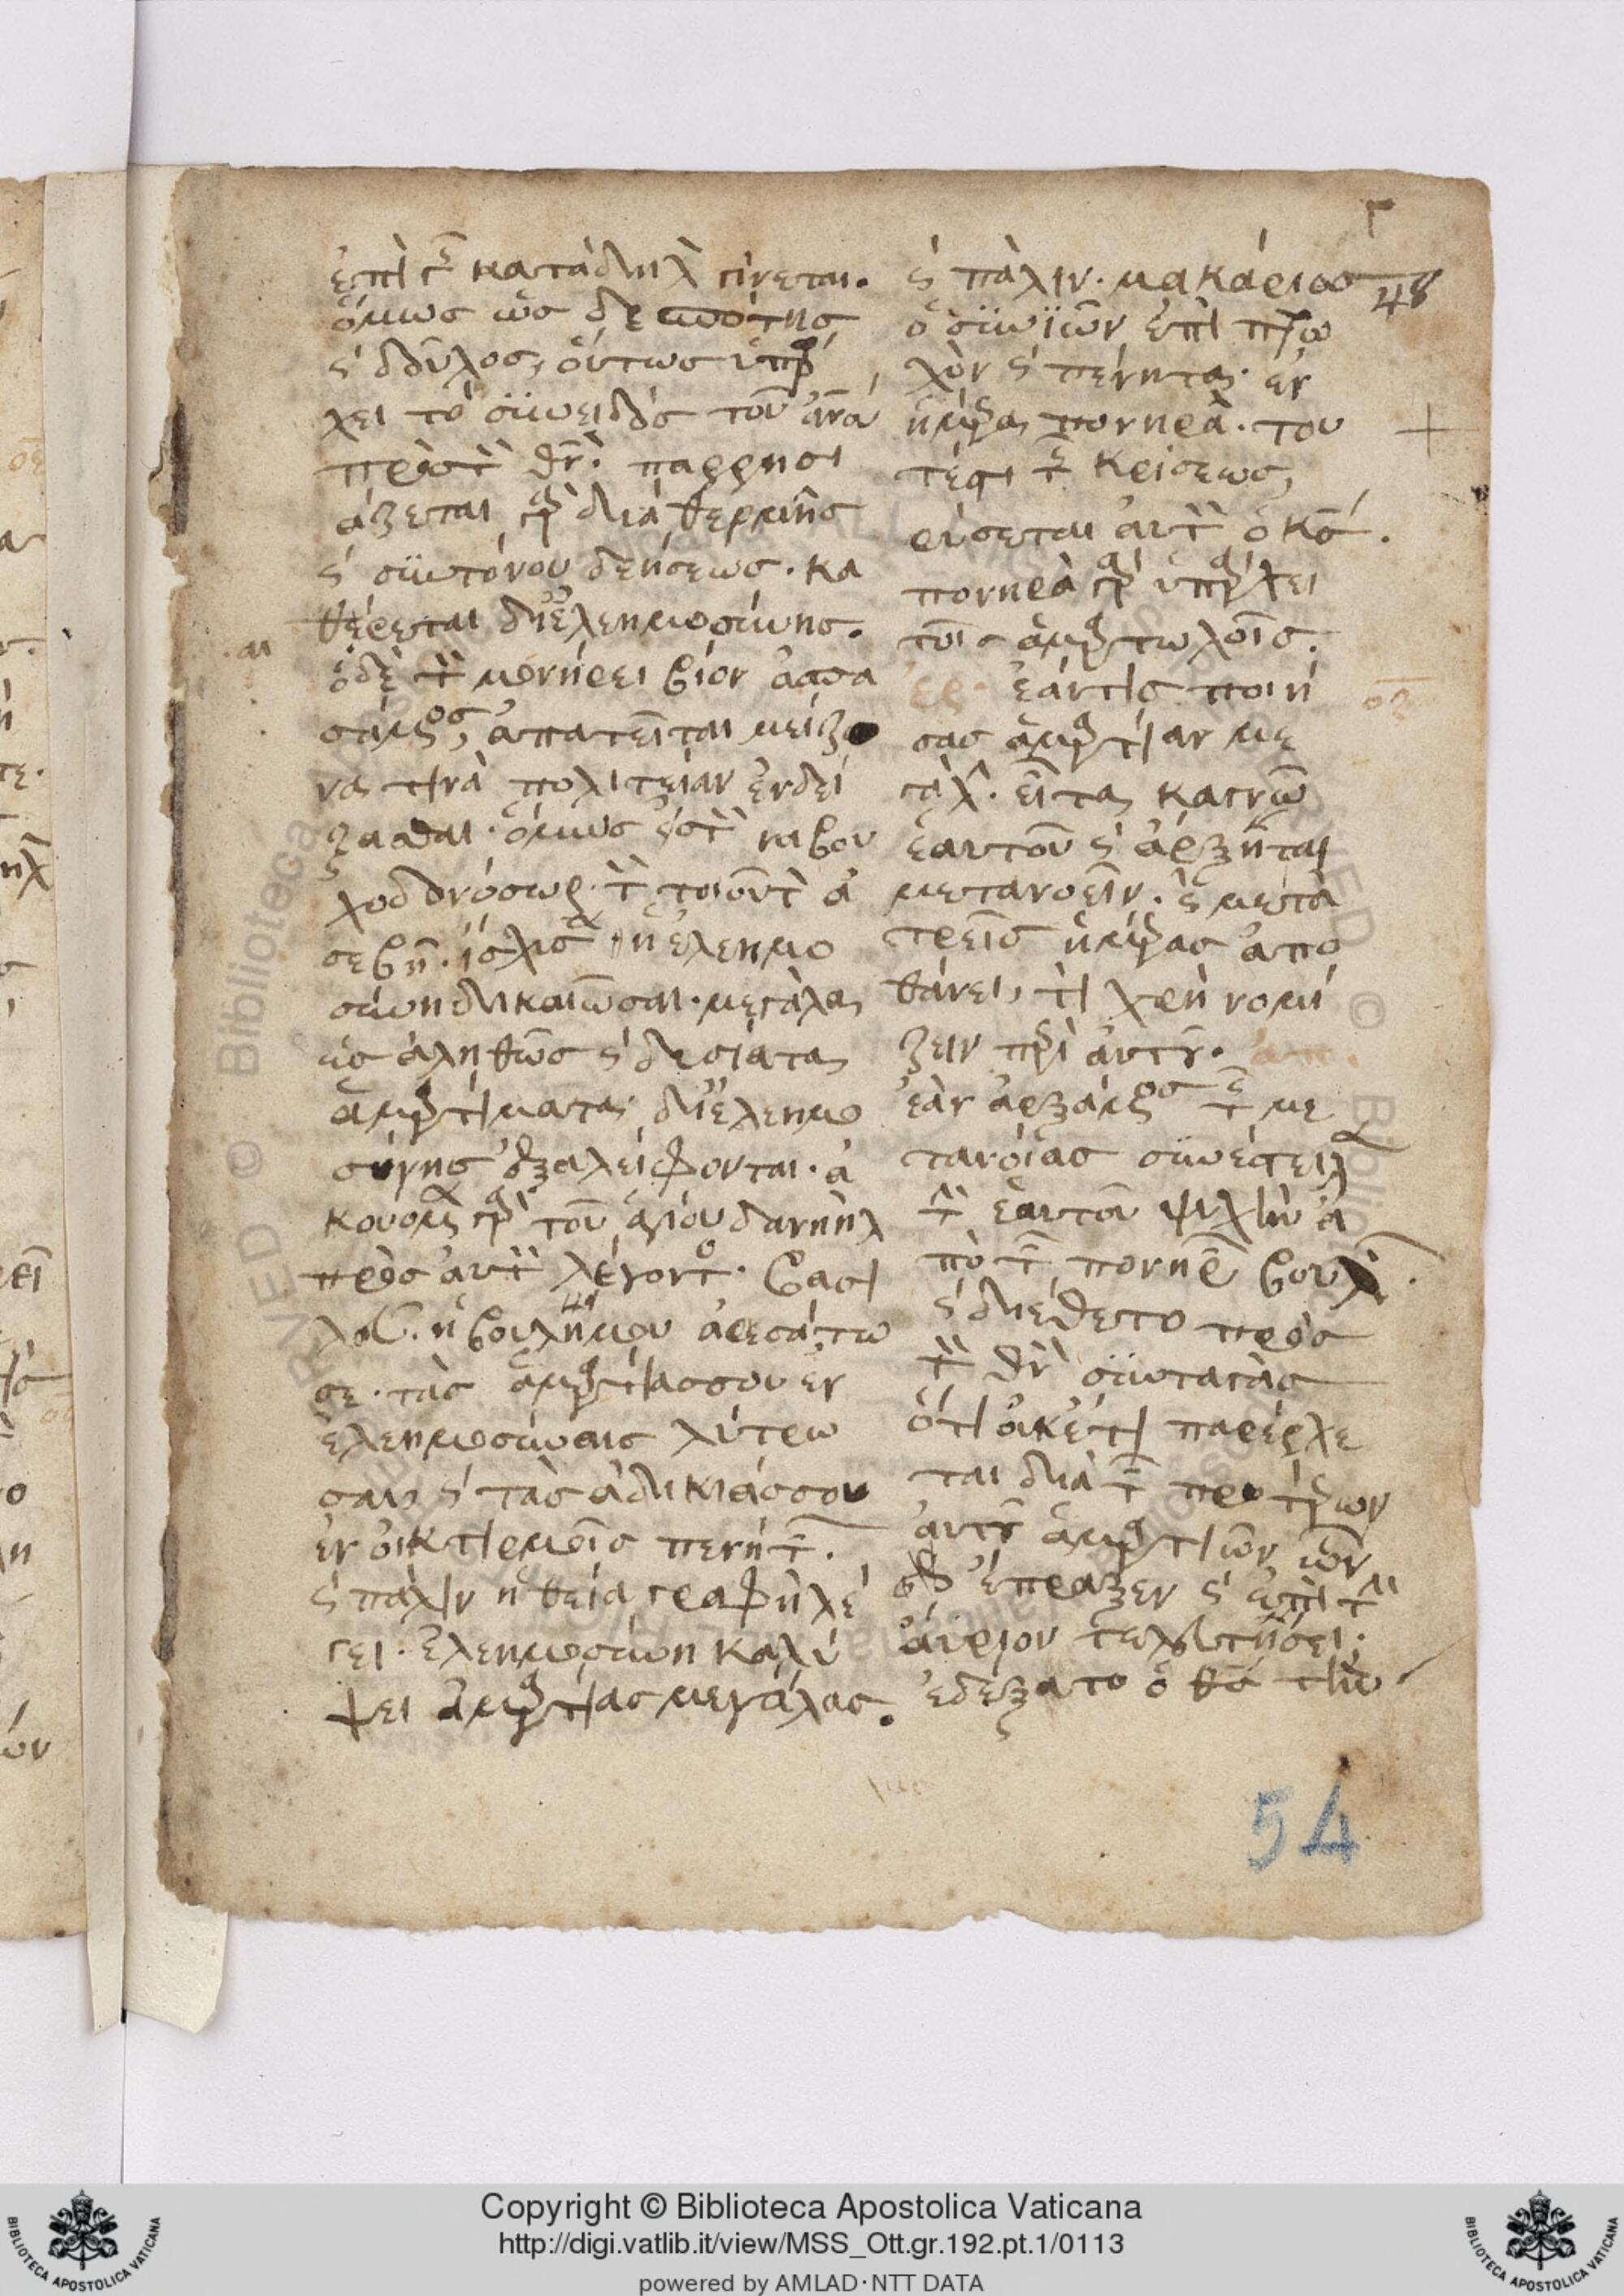 ἐπὶ γῆς κατάδηλος γίνεται.
ὅμως ὡς δεσπότης
καὶ δοῦλος, οὕτως ὑπάρ
χει τὸ συνειδὸς τοῦ ἀνοῦ
πρὸς τὸν θν. παρρησι
άζεται γὰρ διὰ θερμῆς
καὶ συντόνου δεήσεως. κα
θέρεται δι' ἐλεημοσύνης.
ὁ δὲ τὸν μονήρει βίον ἀσπα
σάμενος, ἀπατεῖται μείζο
να τινὰ πολιτείαν ἐνδεί
ξασθαι. ὅμως ἐστὶ ναβου
χοδονόσωρ τὸν τοιοῦτον ἀ
σεβῆ. ἴσχυσεν ἡ ἐλεημο
σύνη δικαιῶσαι. μεγάλα
ὡς ἀληθῶς καὶ
ἁμαρτήματα δι' ἐλεημο
σύνης ἐξαλείφονται. ἀ
κούομεν γὰρ τοῦ ἁγίου δανιὴλ
πρὸς αὐτὸν λέγοντος. βασι
λεῦ. ἡ βουλή μου ἀρεσάτω
σε. τὰς ἁμαρτίας σου ἐν
ἐλεημοσύναις λύτρω
σαι καὶ τὰς ἀδικίας σου
ἐν οἰκτιρμοῖς πενήτων.
καὶ πάλιν ἡ θεία γραφὴ λέ
γει. ἐλεημοσύνη καλύ
ψει ἁμαρτίας μεγάλας.
48
καὶ πάλιν. μακάριος
ὁ συνϊῶν ἐπὶ πτω
χὸν καὶ πένητα. ἐν
ἡμέρα πονηρᾶ. του
τέστι τῆς κρίσεως,
ρύσεται αὐτὸν ὁ κς.
πονηρὰ γὰρ ὑπάρχει
τοῖς ἁμαρτωλοῖς.
ἐρ. ἐάν τις ποιή
οζ
σας ἁμαρτίαν με
γάλην. εἶτα καταγνῶ
ἑαυτοῦ καὶ ἄρξηται
μετανοεῖν. καὶ μετὰ
τρεῖς ἡμέρας ἀπο
θάνει, τί χρὴ νομί
ζειν περὶ αὐτοῦ. ἀπ.
ἐὰν ἀρξάμενος τῆς με
τανοίας συνέστειλεν
τὴν ἑαυτοῦ ψυχὴν ἀ
πὸ τῆς πονηρᾶς βουλῆς.
καὶ διέθετο πρὸς
τὸν θν συνταγὰς
ὅτι οὐκέτι παρέρχε
ται διὰ τῶν προτέρων
αὐτοῦ ἁμαρτιῶν ὧν
ἔπραξεν καὶ ἐπὶ τὴν
αὔριον τελευτήσει.
ἐδέξατο ὁ θς τὴν
54
Copyright © Biblioteca Apostolica Vaticana
http://digi.vatlib.it/view/MSS_Ott.gr.192.pt.1/0113
powered by AMLAD·NTT DATA
BIBLIOTECA APOSTOLICA VATICANA
BIBLIOTECA APOSTOLICA VATICANA